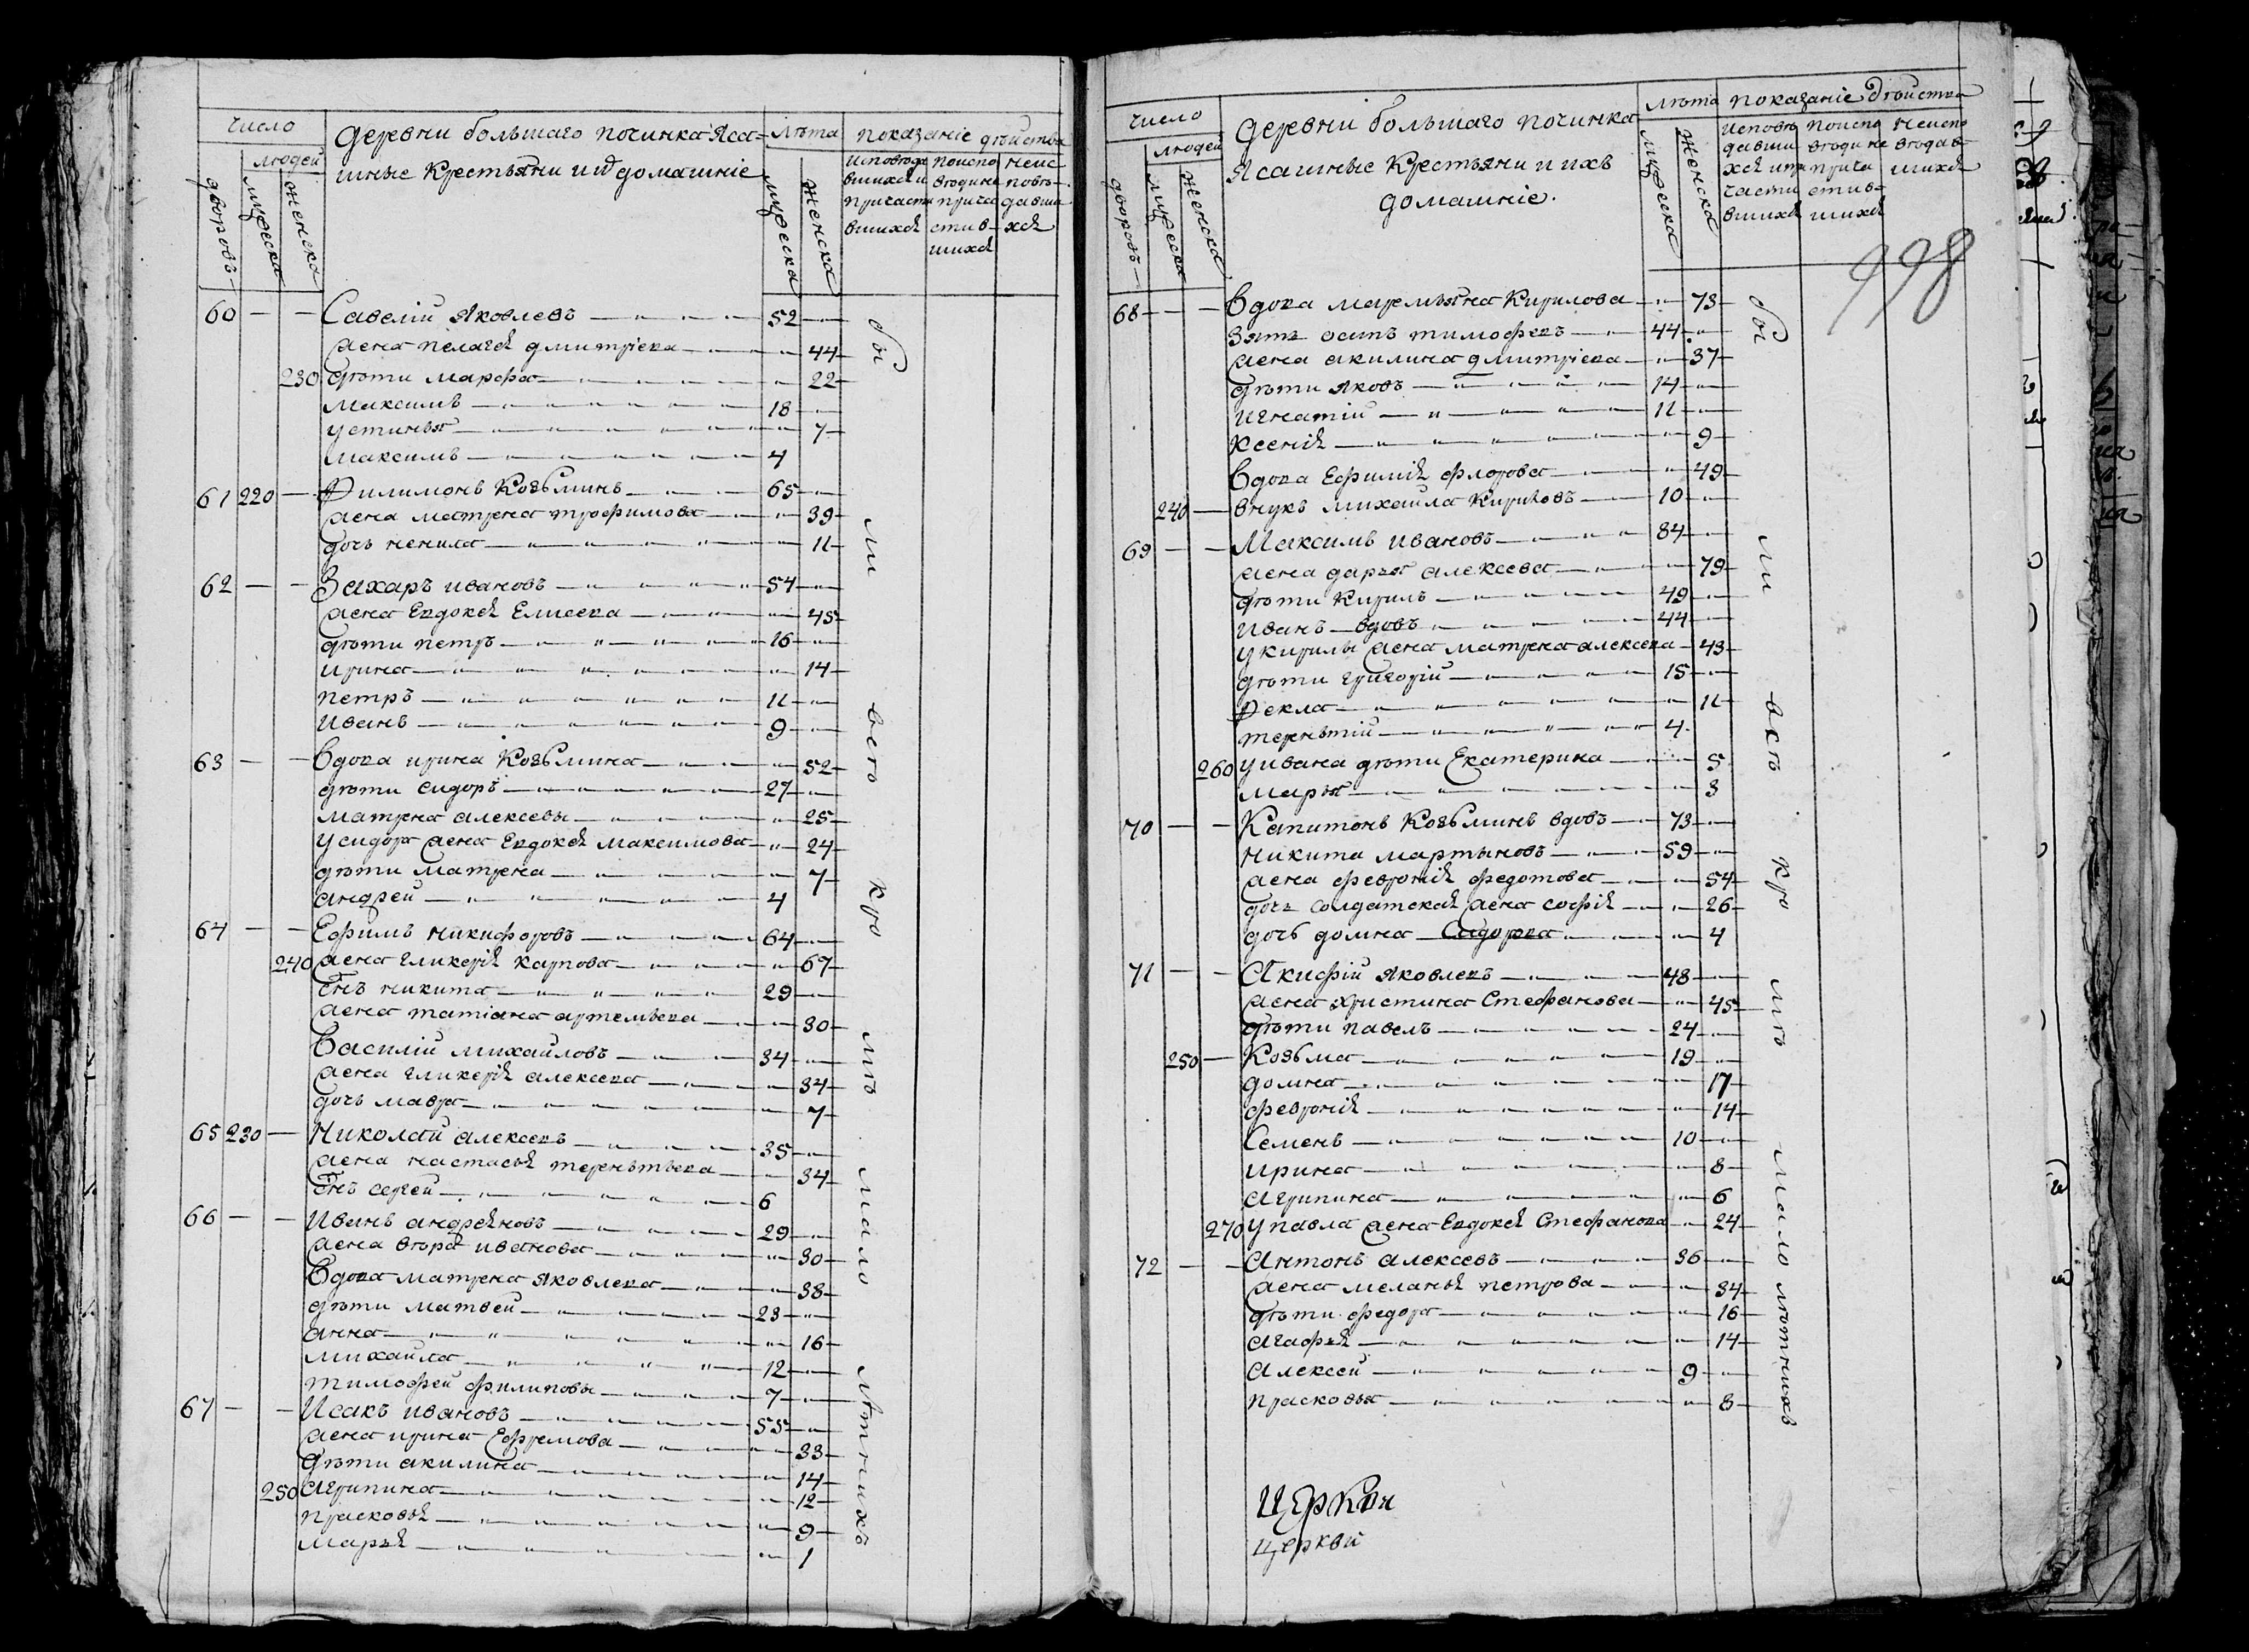 число
людей
дворовъ
мужеска
женска
деревни большаго починка Яса-
шные Крестьяни и их домашніе
лѣта
мужеска
женска
показаніе действа
исповѣда
вшихся и
причасти
вшихся
поиспо
вѣди не
прича
стив-
шихся
неис
повѣ-
давши
хся
60 Савелій Яковлевъ 52
жена пелагея дмитріева 44
230 дѣти марфа 22
максимъ 18
устинья 7
максимъ 4
61 220 Филимонъ Козьминъ 65
жена матрена трофимова 39
дочь ненила 11
62 Захаръ ивановъ 54
жена Евдокея Елисеева 45
дѣти петръ 16
ирина 14
петръ 11
иванъ 9
63 Вдова ирина Козьмина 52
дѣти сидоръ 27
матрена алексевы 25
у сидора жена Евдокея максимова 24
дѣти матрена 7
андрей 4
64 Ефимъ никифоровъ 64
240 жена гликерія карпова 67
Снъ никита 29
жена татіана артемьева 30
Василій михайловъ 34
жена гликерія алексева 34
дочь мавра 7
65 230 Николай алексевъ 35
жена настасья терньтьева 34
Снъ сергеи 6
66 Иванъ андреяновъ 29
жена вѣра иванова 30
Вдова матрена яковлева 38
дѣти матвеи 23
анна 16
михаила 12
тимофеи филиповы 7
67 Исакъ ивановъ 55
жена ирина Ефремова 33
дѣти акилина 14
250 агрипина 12
прасковья 9
марья 1
бы ли всѣ кро мѣ мало лѣтнихъ
число
людей
дворовъ
мужеска
женска
деревни большаго починка
Ясашные Крестьяни и ихъ
домашніе.
лѣта
мужеска
женска
показаніе действа
исповѣ
давши
хся и при
части
вшихся
поиспо
вѣди не
прича
стив-
шихся
неиспо
вѣдав-
шихся
998
68 Вдова маремьяна Кирилова 73
Зять осипъ тимофевъ 44
жена акилина дмитріева 37
дѣти яковъ 14
игнатіи 11
ксенія 9
Вдова Ефимія флорова 49
240 внукъ михаила Кириловъ 10
69 Максимъ ивановъ 84
жена дарья алексева 79
дѣти Кирилъ 49
иванъ вдовъ 44
у кирилы жена матрена алексева 43
дѣти григоріи 15
Фекла 11
терньтіи 4
260 у ивана дѣти Екатерина 5
марья 3
70 Капитонъ Козьминъ вдовъ 73
никита мартыновъ 59
жена февронія федотова 54
дочь солдатская жена софія 26
дочь домна Сидорова 4
71 Акифіи яковлевъ 48
жена христина Стефанова 45
дѣти павелъ 24
250 Козьма 19
домна 17
февронія 14
Семенъ 10
ирина 8
агрипина 6
270 у павла жена Евдокея Стефанова 24
72 Антонъ алексевъ 36
жена меланья петрова 34
дѣти федора 16
агафья 14
алексеи 9
прасковья 8
бы ли всѣ кро мѣ мало лѣтнихъ
церкви
церкви